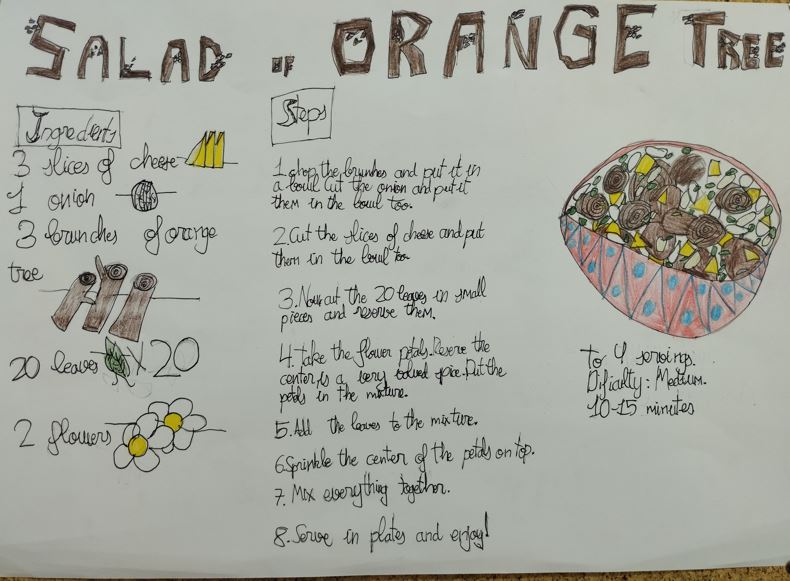 SALAD OF ORANGE TREE
Ingredients
3 slices of cheese
1 onion
3 brunches of orange
tree
20 leaves X20
2 flowers
Steps
1. chop the brunhes and put it in
a bowl cut the onion and put it
them in the bowl too.
2. Cut the slices of cheese and put
them in the bowl too
3. Now cut the 20 leaves in small
pieces and reserve them.
4. take the flower petals. Reserve the
center, is a very valued spice. Put the
petals in the mixture.
5. Add the leaves to the mixture.
6. Sprinkle the center of the petals on top.
7. Mix everything together.
8. Serve in plates and enjoy!
To 4 servings.
Dificalty: Medium.
10-15 minutes